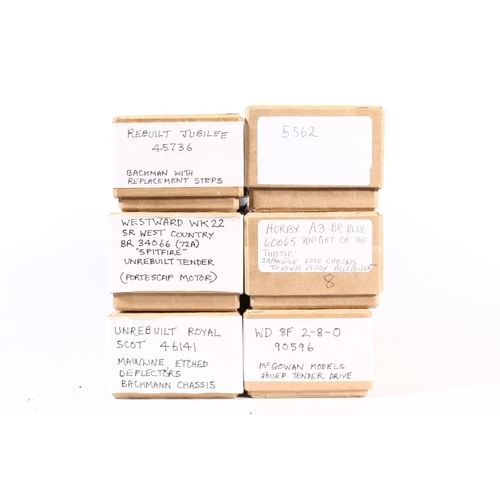 REBUILT JUBILEE
45736
BACHMAN WITH
REPLACEMENT STEPS
5562
WESTWARD WK22
SR WEST COUNTRY
BR 34066 (72A)
"SPITFIRE"
UNREBUILT TENDER
(PORTESCAP MOTOR)
HORBY A3 BR BLUE
60065 'KNIGHT OF THE
THISTLE'
JAPANESE LOCO CHASSIS
TENDER BODY
8
UNREBUILT ROYAL
SCOT 46141
MAINLINE, ETCHED
DEFLECTORS
BACHMANN CHASSIS
WD 8F 2-8-0
90596
McGOWAN MODELS
JOUEF TENDER DRIVE